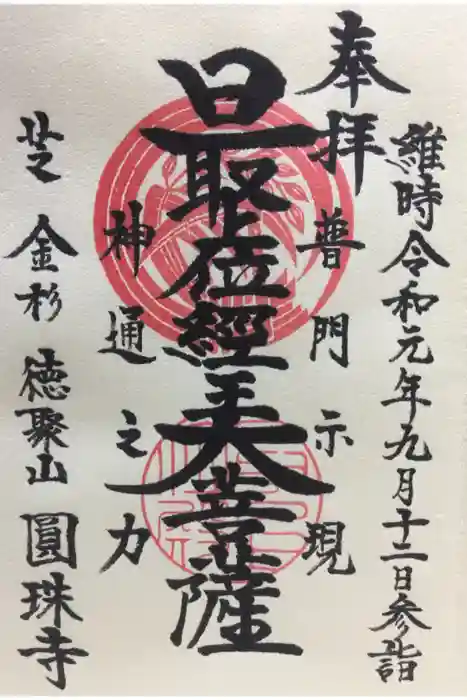 維時令和元年九月十二日参詣
奉拝
普門示現
最上位經王大菩薩
神通之力
芝金杉徳聚山圓珠寺